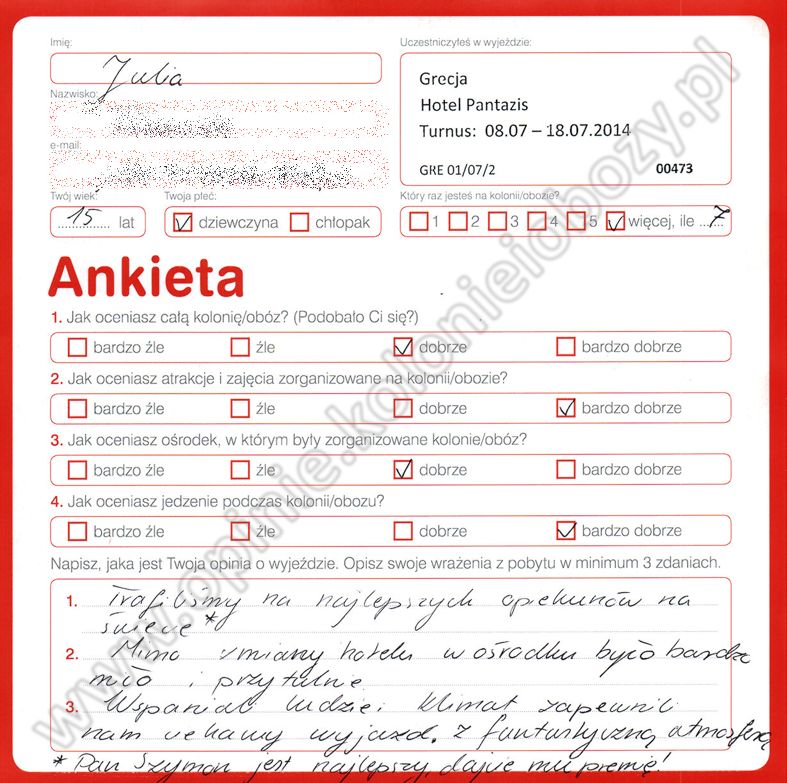 Imię:
Julia
Nazwisko:
e-mail:
Twój wiek:
15 lat
Twoja płeć:
dziewczyna chłopak
Uczestniczyłeś w wyjeździe:
Grecja
Hotel Pantazis
Turnus: 08.07 – 18.07.2014
GRE 01/07/2 00473
Który raz jesteś na kolonii/obozie?
1 2 3 4 5 więcej, ile 7
Ankieta
1. Jak oceniasz całą kolonię/obóz? (Podobało Ci się?)
bardzo źle źle dobrze bardzo dobrze
2. Jak oceniasz atrakcje i zajęcia zorganizowane na kolonii/obozie?
bardzo źle źle dobrze bardzo dobrze
3. Jak oceniasz ośrodek, w którym były zorganizowane kolonie/obóz?
bardzo źle źle dobrze bardzo dobrze
4. Jak oceniasz jedzenie podczas kolonii/obozu?
bardzo źle źle dobrze bardzo dobrze
Napisz, jaka jest Twoja opinia o wyjeździe. Opisz swoje wrażenia z pobytu w minimum 3 zdaniach.
1. Trafiliśmy na najlepszych opiekunów na
świecie *
2. Mimo zmiany hotelu w ośrodku było bardzo
miło i przytulnie
3. Wspaniali ludzie i klimat zapewnili
nam ciekawy wyjazd. z fantastyczną atmosferą
* Pan Szymon jest najlepszy, dajcie mu premię!
www.opinie.kolonieiobozy.pl